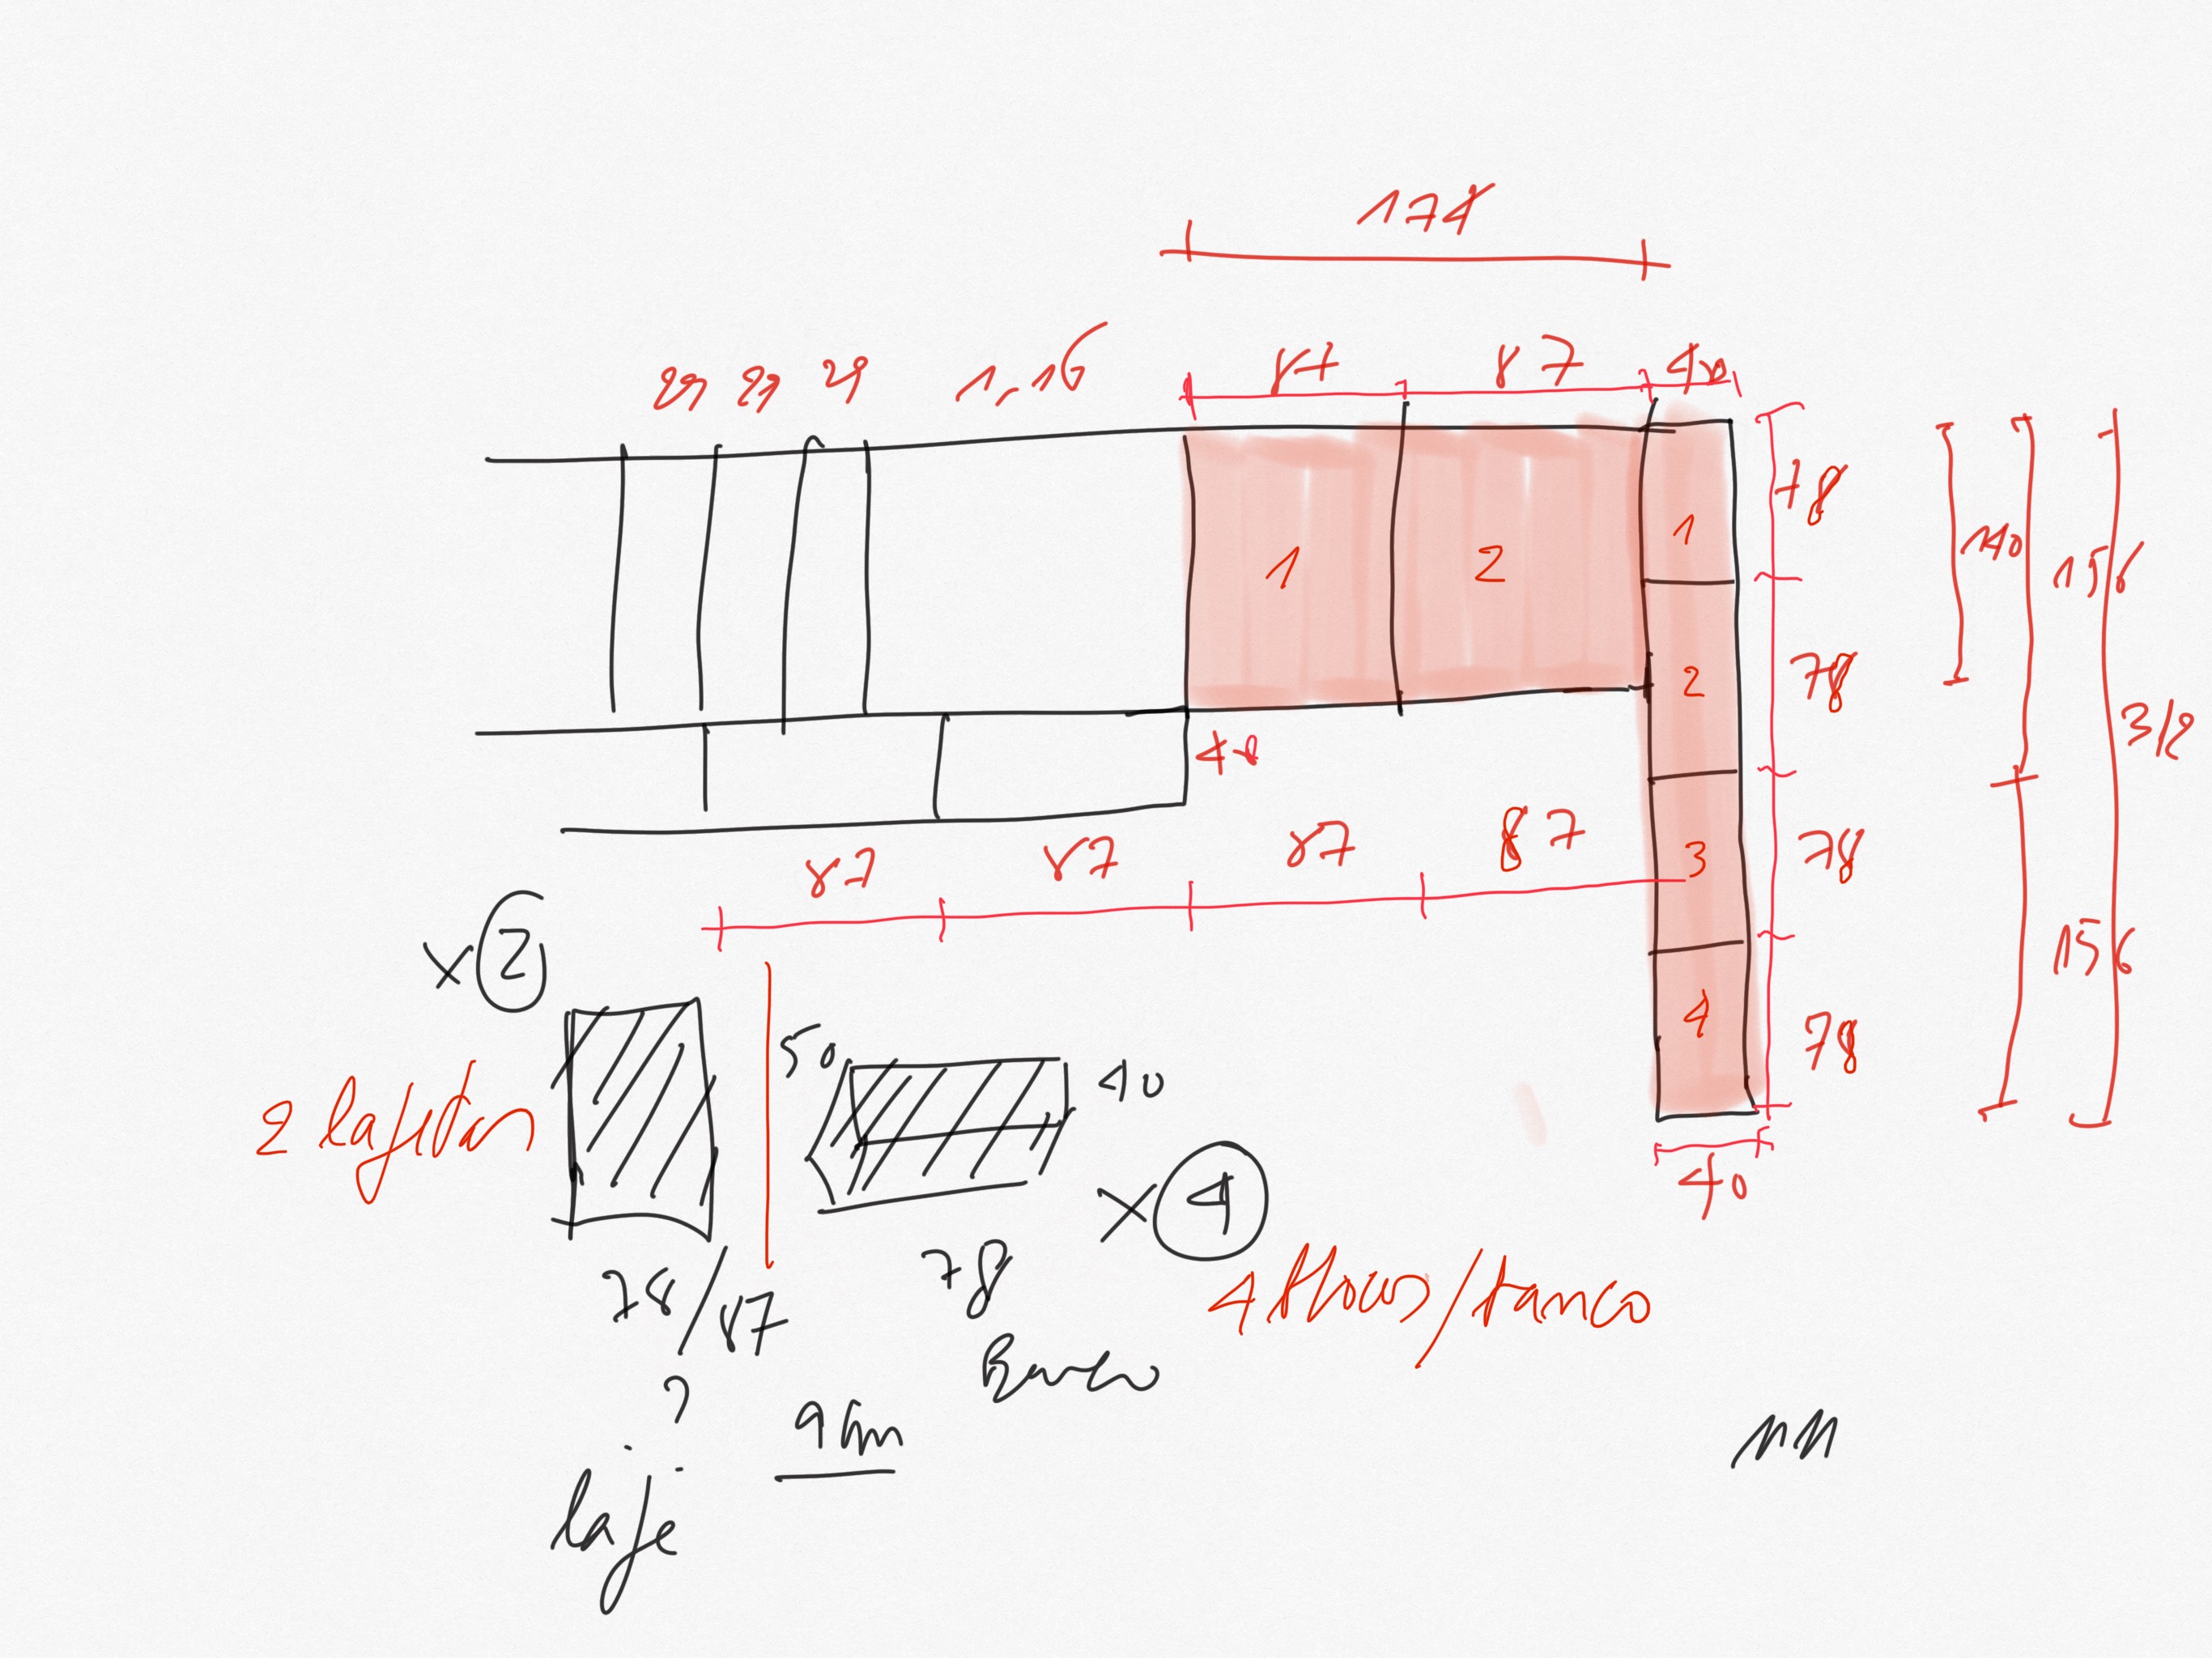 174
29 29 29 1,16 87 87 40
1 2 1 78
140 156
2 78
312
40
87 87 87 87 3 78
x 2
156
4 78
50 40
2 lajetas
x 4
40
78/87 78
4 blocos/banco
? Banco
laje